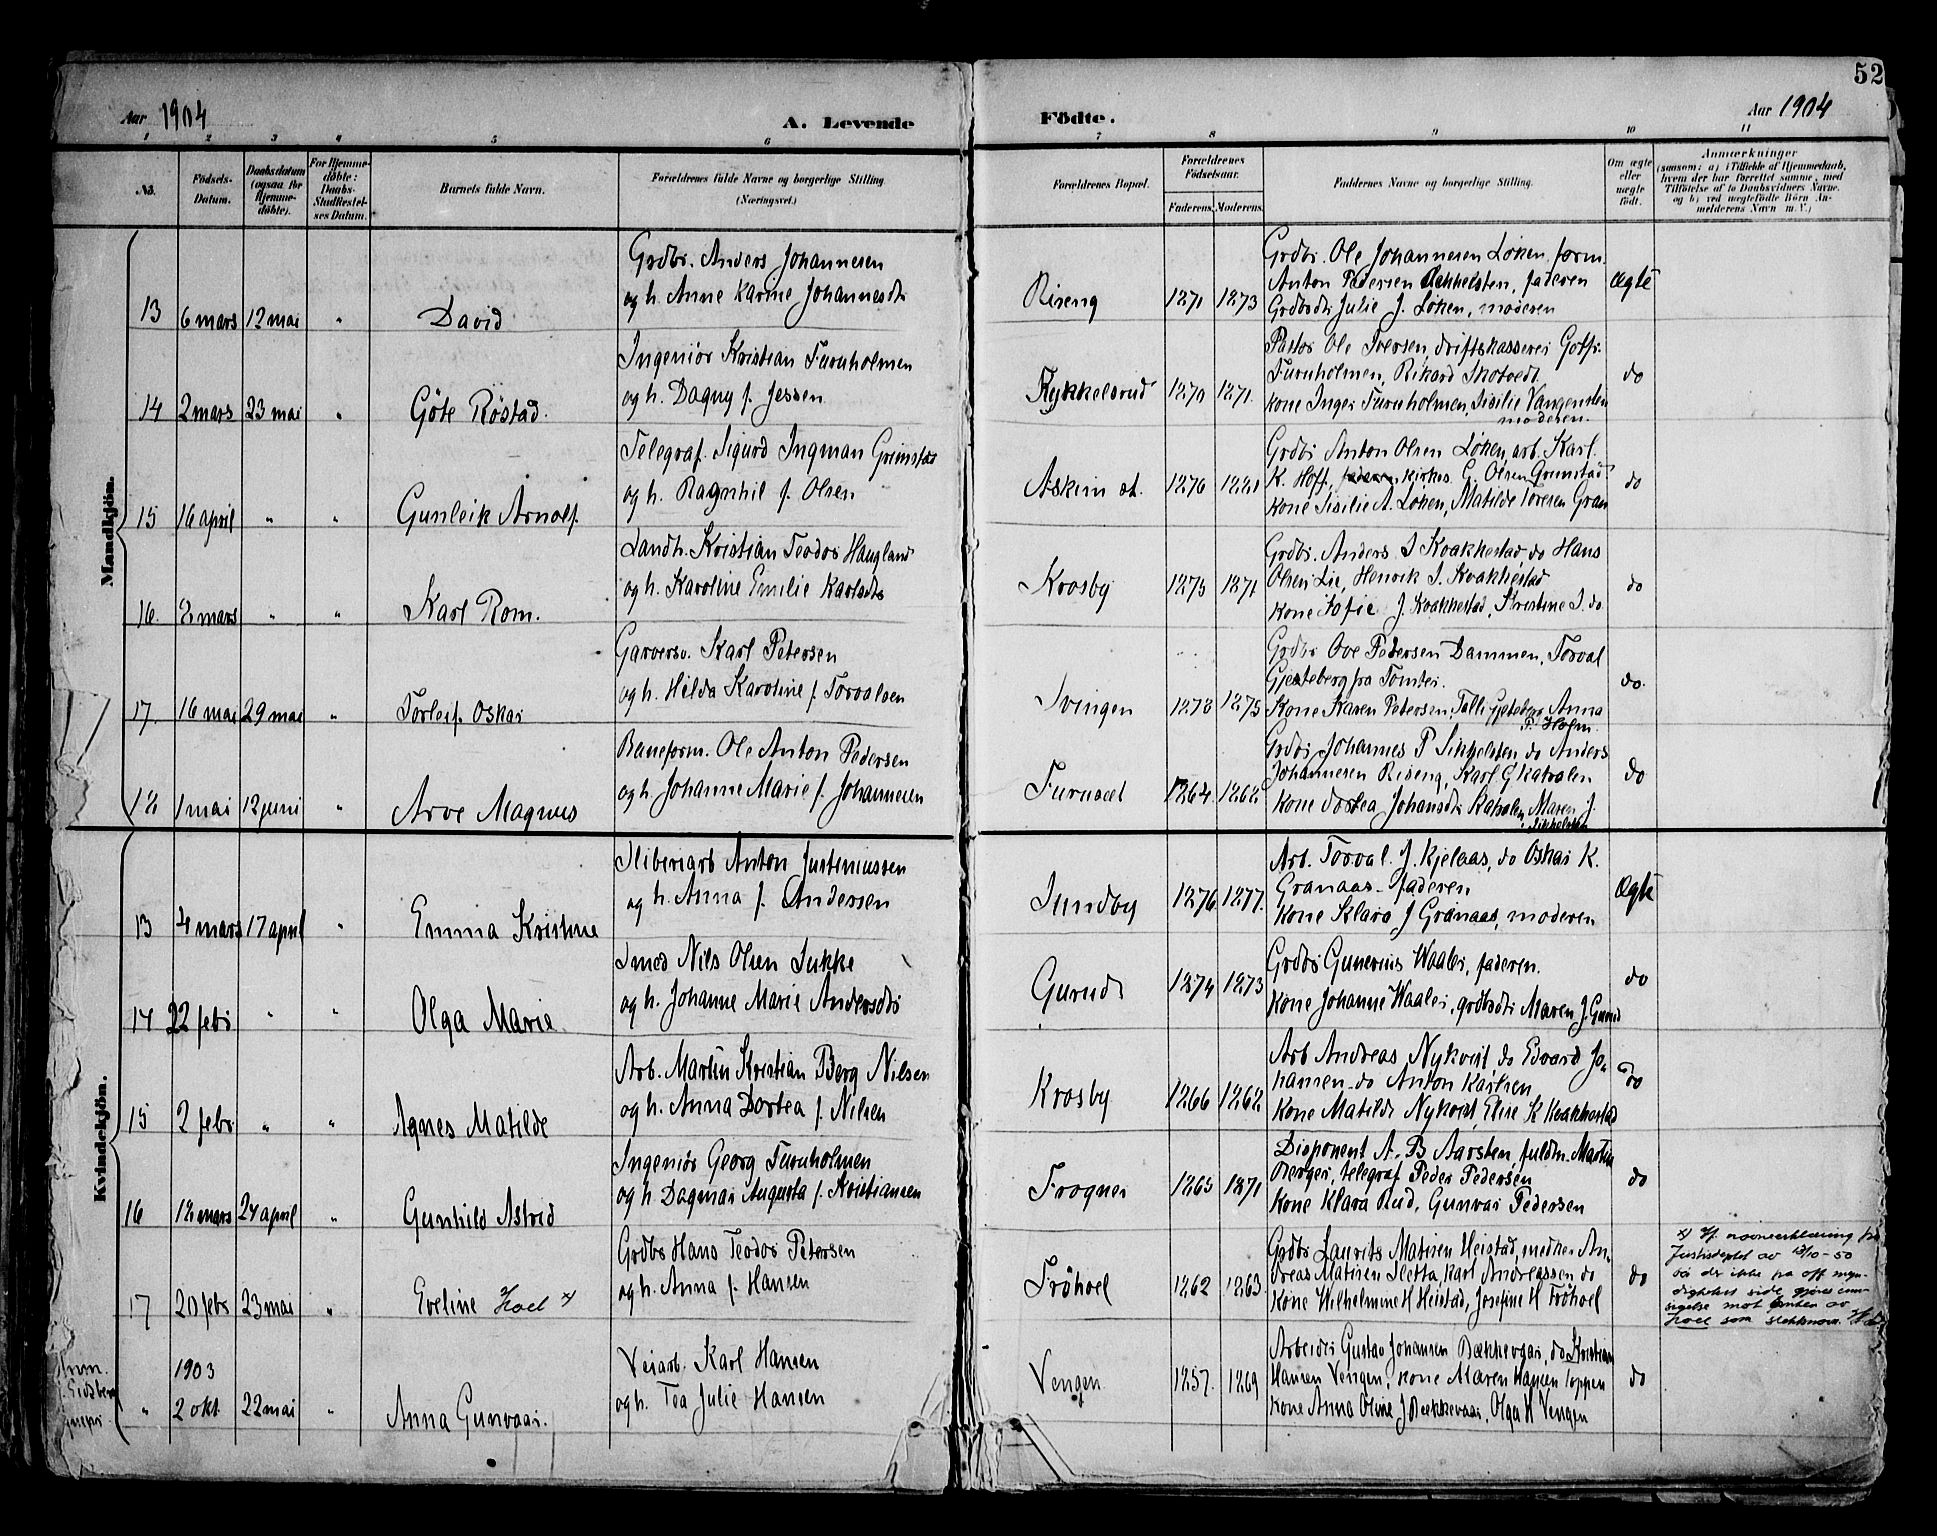 52
Aar 1904
A. Levende
Födte.
Aar 1904
1 2 3 4 5 6 7 8 9 10 11
No.
Födsels-
Datum.
Daabsdatum
(ogsaa for
Hjemme-
döbte).
For Hjemme-
döbte:
Daabs-
Stadfæstel-
ses Datum.
Barnets fulde Navn.
Forældrenes fulde Navne og borgerlige Stilling
(Næringsvei.)
Forældrenes Bopæl.
Forældrenes
Födselsaar.
Faderens. Moderens.
Faddernes Navne og borgerlige Stilling.
Om ægte
eller
uægte
födt.
Anmærkninger
(saasom: a) i Tilfælde af Hjemmedaab,
hvem der har forrettet samme, med
Tilföielse af to Daabsvidners Navne.
og b) ved uægtefödte Börn An-
melderens Navn m. V.)
Mandkjön.
13 6 mars 12 mai " David
Grdbr. Anders Johannesen
og h. Anne Karine Johannesdtr
Riseng 1871 1873
Grdbr. Ole Johannesen Løken, form.
Anton Pedersen Sekkelsten, faderen
Grdbrdtr Julie J. Løken, moderen
Ægte
14 2 mars 23 mai " Göte Röstad.
Ingeniör Kristian Furuholmen
og h. Dagny f. Jessen
Kykkelsrud 1870 1871
Pastor Ole Iversen, driftskasserer Gotfr.
Furuholmen, Rikard Skotvedt
Kone Inger Furuholmen, Sisilie Vangensten
moderen.
do
15 16 april " " Gunleik Arnolf.
Telegraf. Sigurd Ingman Grimstad
og h. Ragnhil f. Olsen
Askim st. 1876 1881
Grdbr Anton Olsen Løken, arb. Karl.
K. Hoff, faderen, kirkes. G. Olsen Grimstad
Kone Sisilie A. Løken, Matilde Toresen Gran
do
16. 8 mars " " Karl Rom.
Landh. Kristian Teodor Haugland
og h. Karoline Emilie Karlsdtr
Krosby 1875 1871
Grdbr. Anders J Kvakkestad, do Hans
Olsen Lie, Henrik J. Kvakkestad
Kone Sofie J. Kvakkestad, Kristine J. do
do
17. 16 mai 29 mai " Torleif Oskar
Garversv. Karl Petersen
og h. Hilda Karoline f. Torvalsen
Svingen 1878 1875
Grdbr Ove Pedersen Dammen, Torval
Gjeteberg fra Tomter.
Kone Karen Petersen, Talli Gjeteberg Anna
P. Holm.
do.
18 1 mai 12 juni " Arve Magnus
Baneform. Ole Anton Pedersen
og h. Johanne Marie f. Johannesen
Furuset 1864 1862
Grdbr Johannes P Sekkelsten do Anders
Johannesen Riseng, Karl G Katralen
Kone Dortea Johansdtr Katralen, Maren J.
Sekkelsten
do
Kvindekjön.
13 4 mars 17 april " Emma Kristine
Sliberiarb Anton Justimiussen
og h. Anna f. Andersen
Sundby 1876 1877.
Arb. Torval. J. Kjelaas, do Oskar K.
Granaas - faderen
Kone Klara J Granaas, moderen
Ægte
14 22 febr " " Olga Marie
Smed Nils Olsen Sukke
og h. Johanne Marie Andersdtr
Gurud 1874 1873
Grdbr Gunerius Waaler, faderen.
Kone Johanne Waaler, grdbrdtr Maren J. Gurud
do
15 2 febr " " Agnes Matilde
Arb. Martin Kristian Berg Nilsen
og h. Anna Dortea f. Nilsen
Krosby 1866 1862
Arb Andreas Nykvist, do Edvard Jo-
hansen - do Anton Karlsen
Kone Matilde Nykvist, Elise K Kvakkestad
do
16 18 mars 24 april " Gunhild Astrid
Ingeniör Georg Furuholmen
og h. Dagmar Augusta f. Kristiansen
Frogner 1865 1871
Disponent A. B Aarsten, fuldm. Martin
Berger, telegraf Peder Pedersen
Kone Klara Rud, Gunvar Pedersen
do
17 20 febr 23 mai " Eveline Hoel x
Grdbr Hans Teodor Petersen
og h. Anna f. Hansen
Fröhoel 1862 1863
Grdbr Laurits Matisen Heistad, medher An-
dreas Matisen Sletta, Karl Andreassen do
Kone Wilhelmine H Heistad, Josefine H Fröhoel
do
x) If. navneerklæring fra
Justisdeptet av 13/10-50
vil der ikke fra off. myn-
digheters side gjøres inn-
sigelse mot bruken av
Hoel som slektsnavn.
Anm.
Eidsberg
" 1903
2 okt 22 mai " Anna Gunvaar.
Veiarb. Karl Hansen
og h. Tea Julie Hansen
Vengen 1857 1869
Arbeider Gustav Johansen Bækkevar, do Kristian
Hansen Vengen, kone Maren Hansen Toppen
Kone Anna Oline J Bækkevaar, Olga H Vengen
do